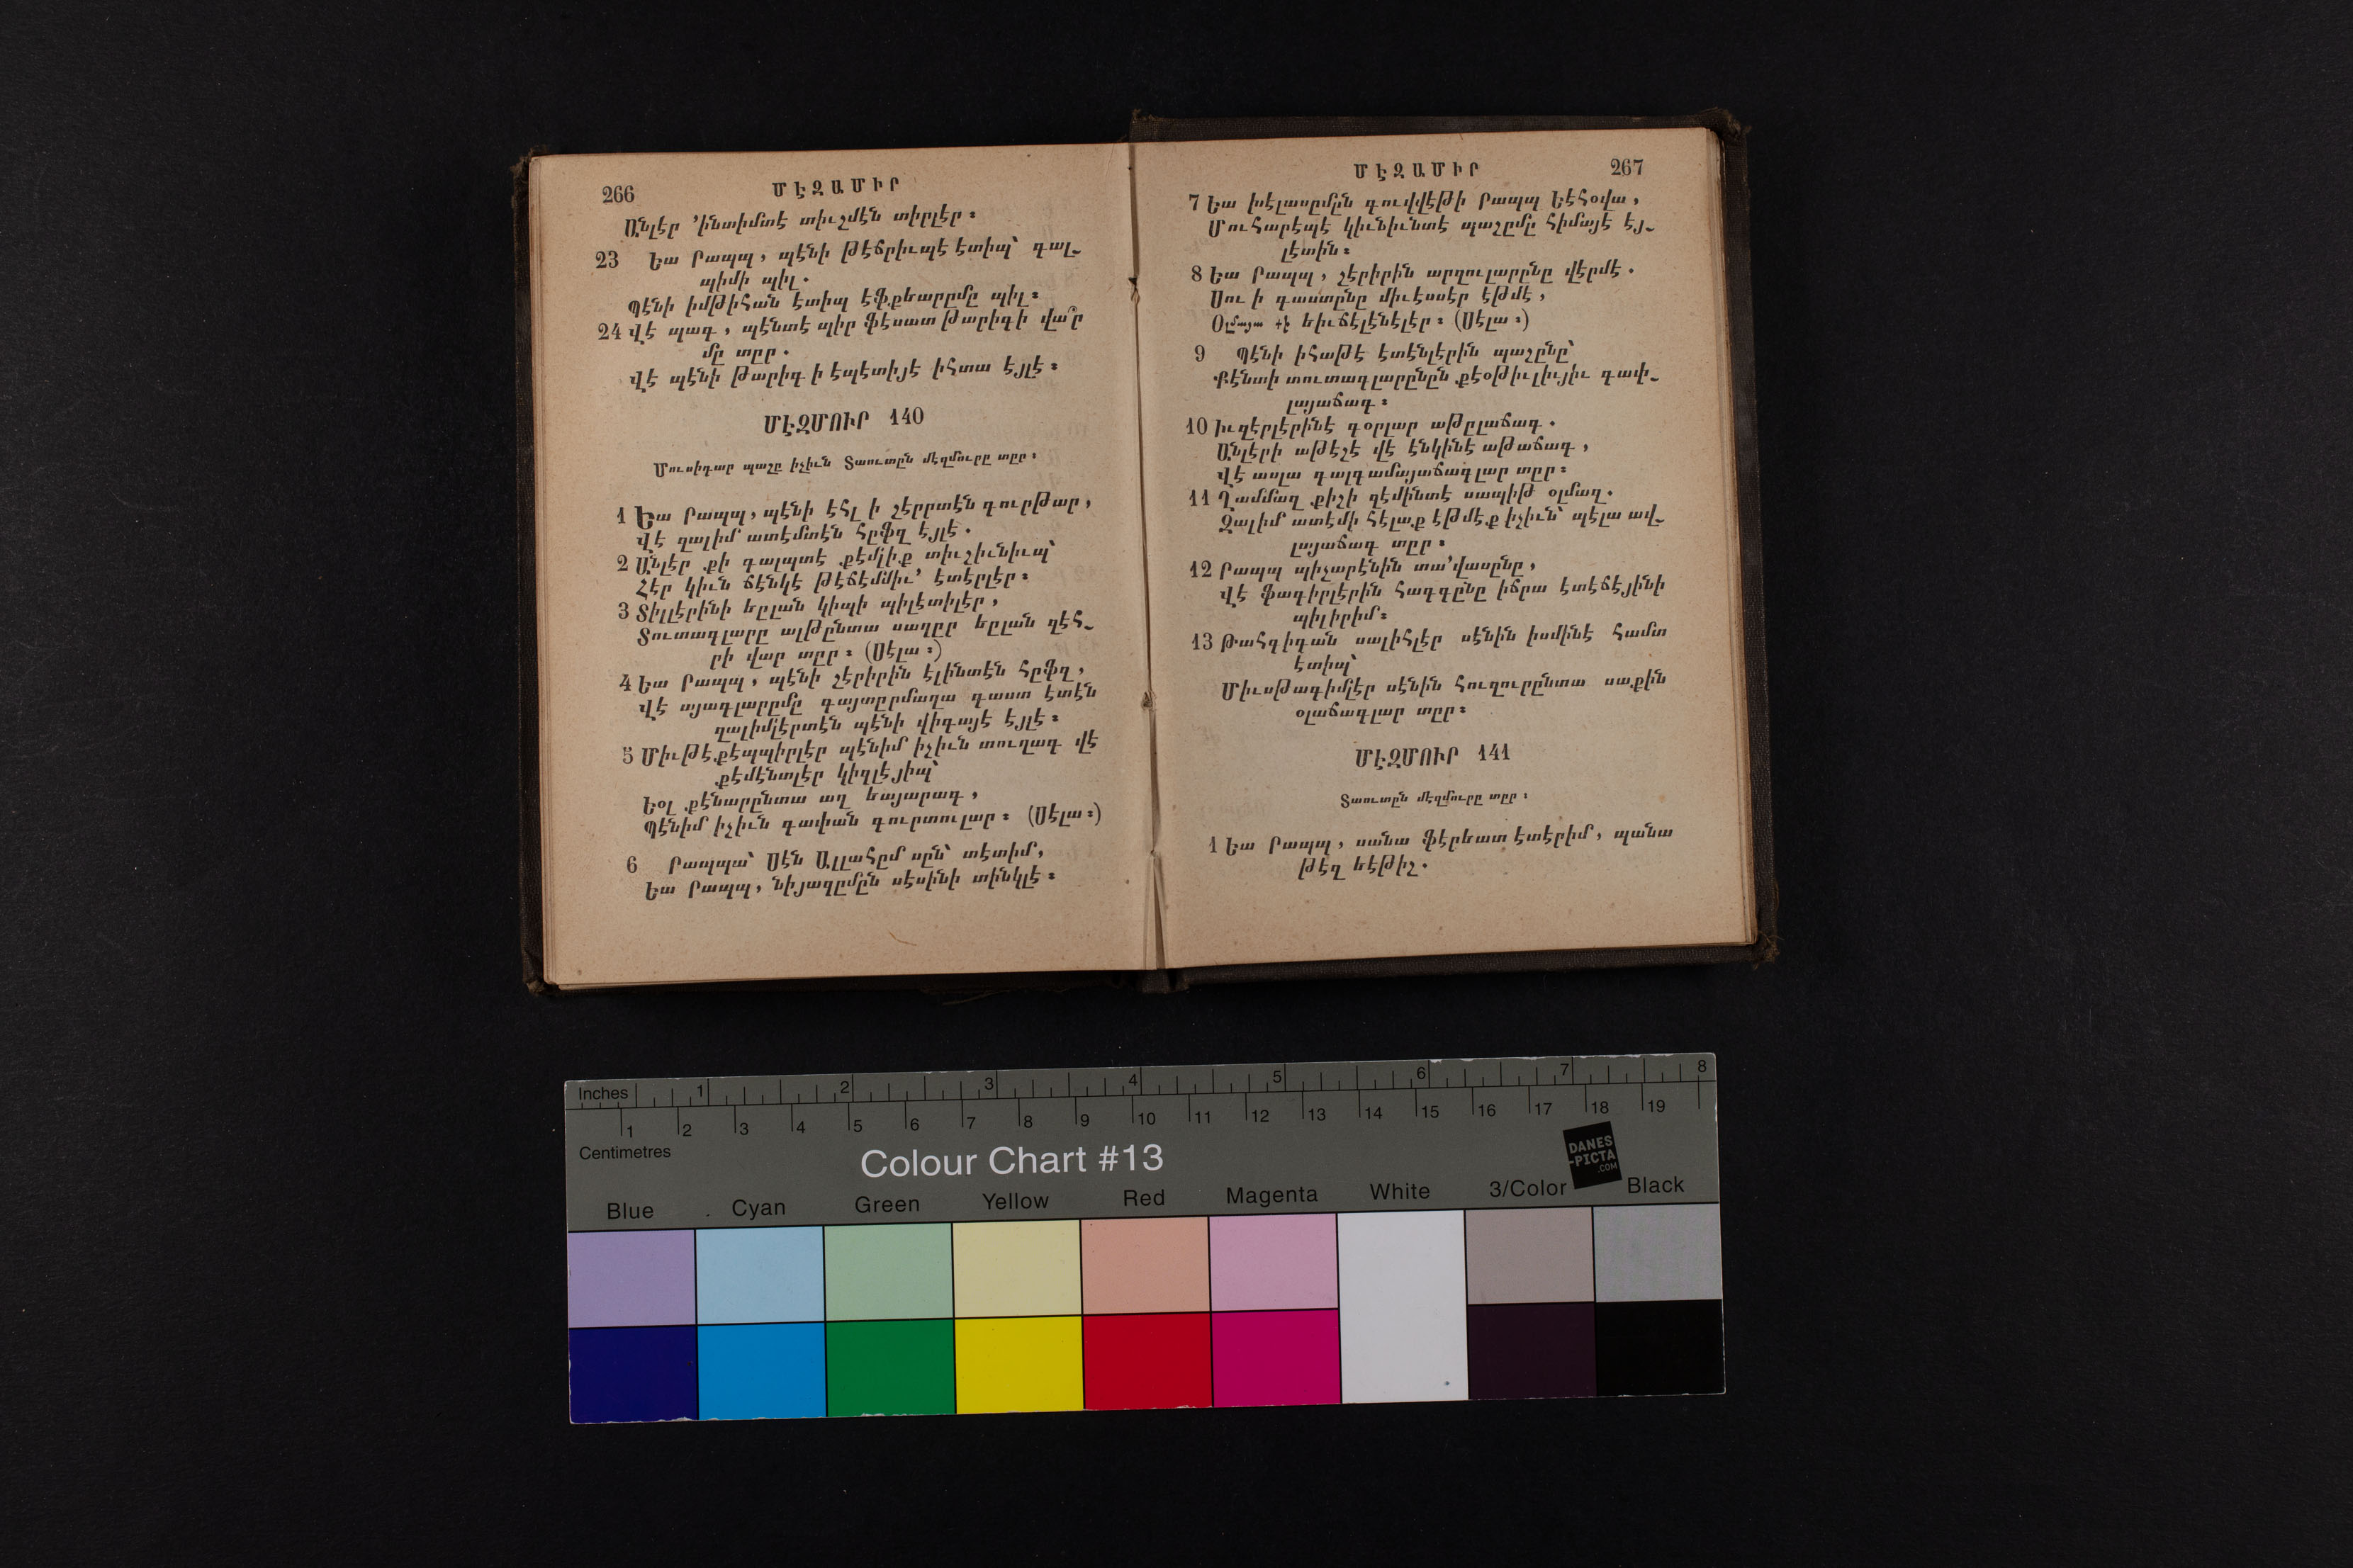 266 ՄԷԶԱՄԻՐ
Անլէր ՚ինտիմտէ տիւշմէն տիրլէր։
23 Եա Րապպ, պէնի թէճրիւպէ էտիպ՝ գալ-
պիմի պիլ.
Պէնի իմթիհան էտիպ էֆքեարըմը պիլ։
24 Վէ պագ, պէնտէ պիր ֆէսատ թարիգի վա՞ր
մը տըր.
Վէ պէնի թարիգ ի էպէտիյէ իհտա էյլէ։
ՄԷԶՄՈՒՐ 140
Մուսիգար պաշը իչիւն Տաուտըն մէզմուրը տըր։
1 Եա Րապպ, պէնի էհլ ի շէրրտէն գուրթար,
Վէ զալիմ ատէմտէն հըֆզ էյլէ.
2 Անլէր քի գալպտէ քէմլիք տիւշիւնիւպ՝
Հէր կիւն ճէնկէ թէճէմմիւ՚ էտէրլէր։
3 Տիլլէրինի եըլան կիպի պիլէտիլէր,
Տուտագլարը ալթընտա սաղըր եըլան զէհ-
րի վար տըր։ (Սէլա։)
4 Եա Րապպ, պէնի շէրիրին էլինտէն հըֆզ,
Վէ այագլարըմը գայտըրմաղա գաստ էտէն
զալիմլէրտէն պէնի վիգայէ էյլէ։
5 Միւթէքէպպիրլէր պէնիմ իչիւն տուզագ վէ
քէմէնտլէր կիզլէյիպ՝
Եօլ քէնարընտա աղ եայարագ,
Պէնիմ իչիւն գափան գուրտուլար։ (Սէլա։)
6 Րապպա՝ Սէն Ալլահըմ սըն՝ տէտիմ,
Եա Րապպ, նիյազըմըն սէսինի տինկլէ։
ՄԷԶԱՄԻՐ 267
7 Եա խէլասըմըն գուվվէթի Րապպ Եէհօվա,
Մուհարէպէ կիւնիւնտէ պաշըմը հիմայէ էյ-
լէտին։
8 Եա Րապպ, շէրիրին արզուլարընը վէրմէ.
Սու ի գաստընը միւէսսէր էթմէ,
Օլմայա քի եիւճէլէնէլէր։ (Սէլա։)
9 Պէնի իհաթէ էտէնլէրին պաշընը՝
Քէնտի տուտագլարընըն քէօթիւլիւյիւ գափ-
լայաճագ։
10 Իւզէրլէրինէ գօրլար աթըլաճագ.
Անլերի աթէշէ վէ էնկինէ աթաճագ,
Վէ ասլա գալգամայաճագլար տըր։
11 Ղամմազ քիշի զէմինտէ սապիթ օլմազ.
Զալիմ ատէմի հէլաք էթմէք իչիւն՝ պէլա ավ-
լայաճագ տըր։
12 Րապպ պիչարէնին տա՚վասընը,
Վէ ֆագիրլէրին հագգընը իճրա էտէճէյինի
պիլիրիմ։
13 Թահգիգան սալիհլէր սէնին իսմինէ համտ
էտիպ՝
Միւսթագիմլէր սէնին հուզուրընտա սաքին
օլաճագլար տըր։
ՄԷԶՄՈՒՐ 141
Տաուտըն մէզմուրը տըր։
1 Եա Րապպ, սանա ֆէրեատ էտէրիմ, պանա
թէզ եէթիշ.
Inches 1 2 3 4 5 6 7 8
1 2 3 4 5 6 7 8 9 10 11 12 13 14 15 16 17 18 19
Centimetres
Colour Chart #13
DANES
-PICTA
.COM
Blue Cyan Green Yellow Red Magenta White 3/Color Black